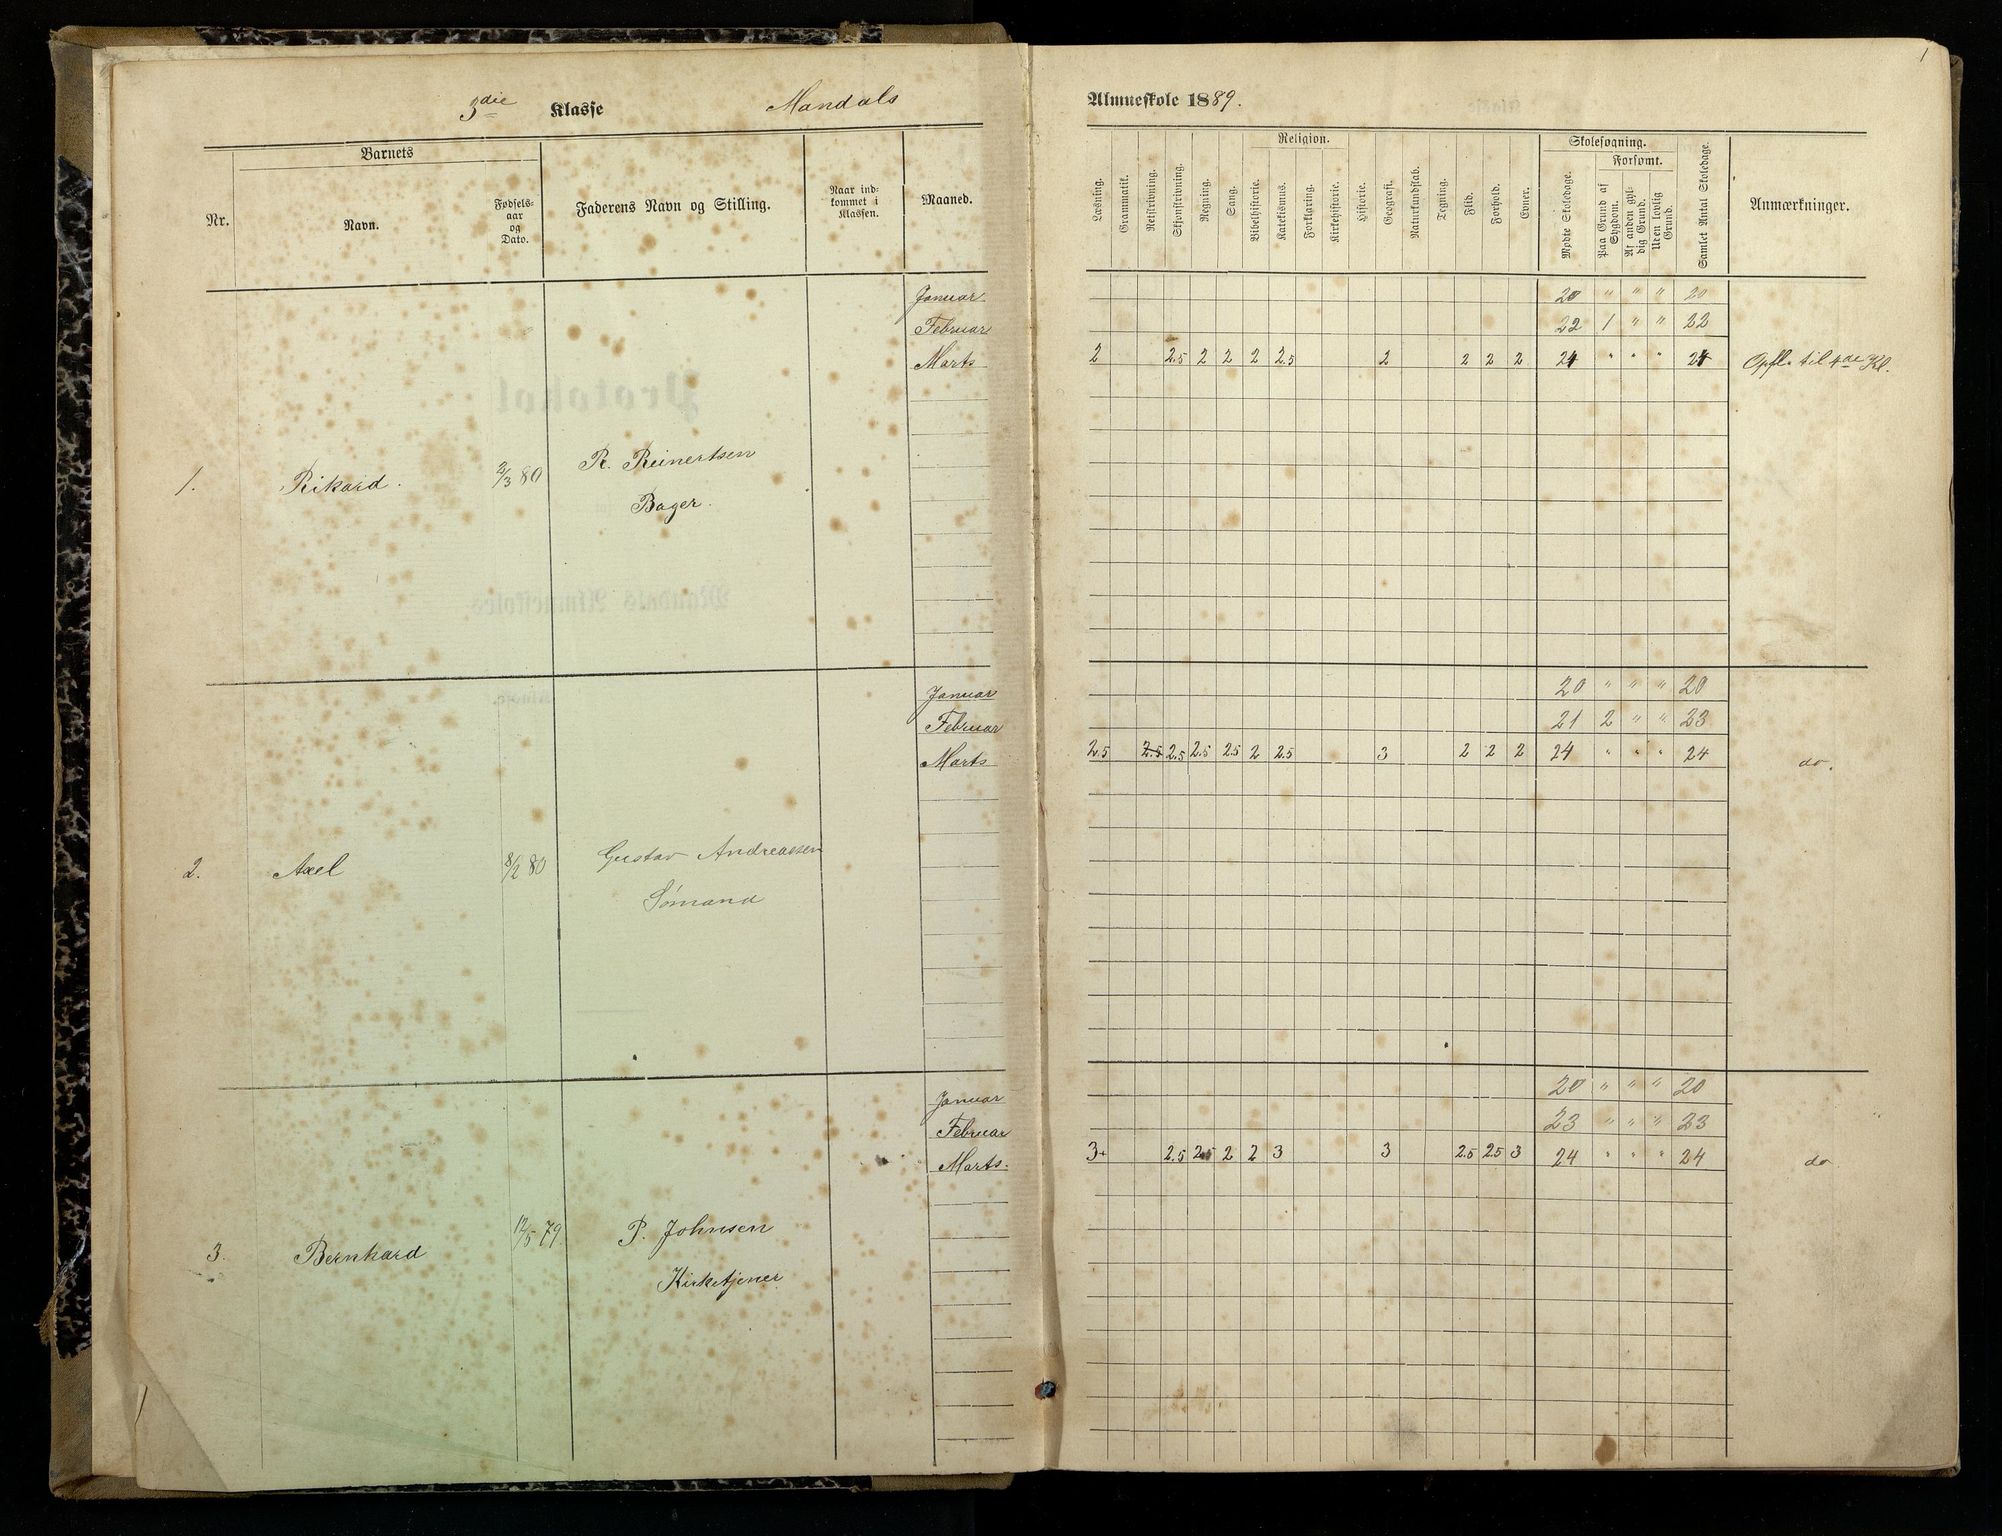 1
3die Klasse Mandals Almueskole 1889.
Nr. Barnets Faderens Navn og Stilling. Naar ind-kommet i Klassen. Maaned.
Navn. Fødsels-aar og Dato.
Læsning. Grammatik. Retskrivning. Skjønskrivning. Regning. Sang. Religion. Bibelhistorie. Katekismus. Forklaring. Kirkehistorie. Historie. Geografi. Naturkundskab. Tegning. Flid. Forhold. Evner. Skolesøgning. Mødte Skoledage. Forsømt. Paa Grund af Sygdom. Af anden gyl-dig Grund. Uden lovlig Grund. Samlet Antal Skoledage. Anmærkninger.
Januar 20 " " " 20
Februar 22 1 " " 22
Marts 2 2.5 2 2 2 2.5 2 2 2 2 24 " " " 24 Opfl. til 4de Kl.
1. Rikard. 2/3 80 R. Reinertsen
Bager.
Januar 20 " " " 20
Februar 21 2 " " 23
Marts 2.5 2.5 2.5 2.5 2.5 2 2.5 3 2 2 2 24 " " " 24 do.
2. Axel 8/2 80 Gustav Andreassen
Sømand
Januar 20 " " " 20
Februar 23 " " " 23
Marts. 3+ 2.5 2.5 2 2 3 3 2.5 2.5 3 24 " " " 24 do
3. Bernhard 12/5 79 P. Johnsen
Kirketjener